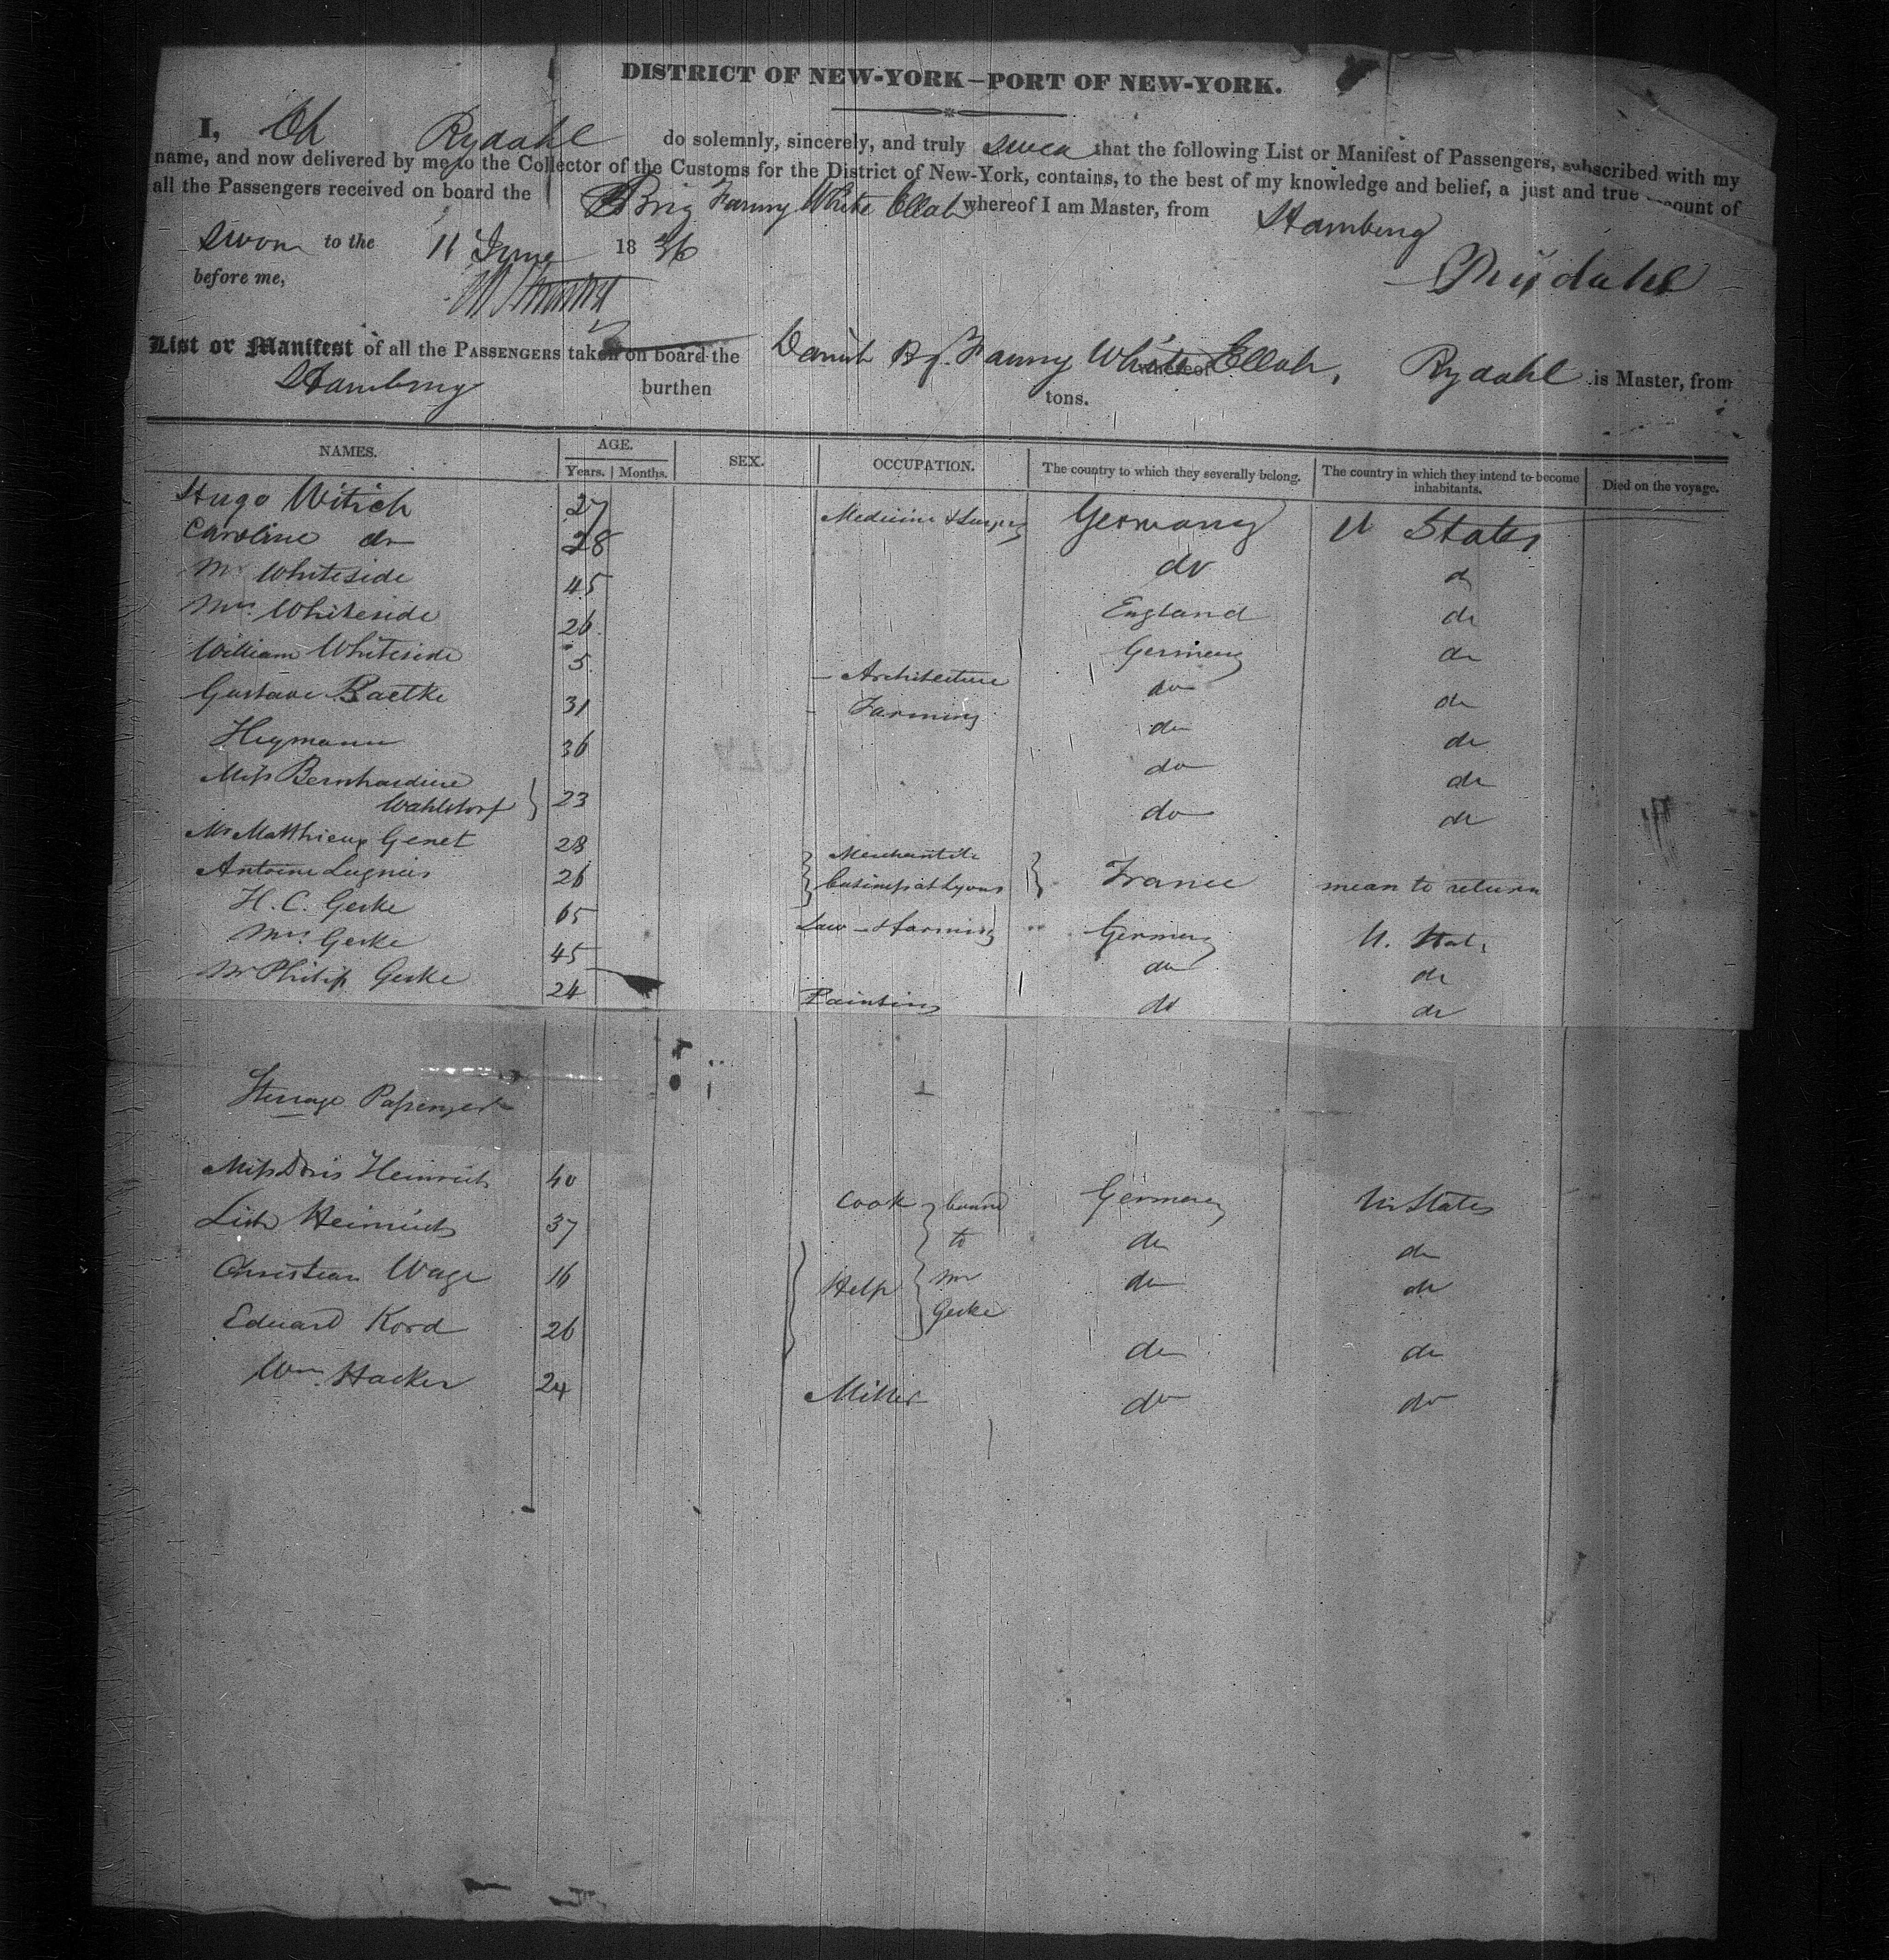 DISTRICT OF NEW-YORK—PORT OF NEW-YORK.
I, Ch Rydahl do solemnly, sincerely, and truly swear that the following List or Manifest of Passengers, subscribed with my
name, and now delivered by me to the Collector of the Customs for the District of New-York, contains, to the best of my knowledge and belief, a just and true account of
all the Passengers received on board the Brig Fanny White Ellah whereof I am Master, from Hamburg
Sworn to the 11 June 1836
before me,
Rydahl
List or Manifest of all the PASSENGERS taken on board the Danish Bg. Fanny White Ellah, whereof Rydahl is Master, from
Hamburg burthen tons.
NAMES. AGE. SEX. OCCUPATION. The country to which they severally belong. The country in which they intend to become inhabitants. Died on the voyage.
Years. Months.
Hugo Witich 27 Medicine & Surgery Germany U States
Caroline do 28 do do
Mr Whiteside 45 England do
Mrs. Whiteside 26 Germany do
William Whiteside 5 do do
Gustave Baetke 31 Architecture do do
Heymann 36 Farming do do
Miss Bernhardine
Wahlstorf 23 do do
Mr Matthieux Genet 28 Merchantile
Antoine Lugnier 26 business at Lyons France mean to return
H. C. Gerke 65 Law & Farming Germany U. Stats
Mrs. Gerke 45 do do
Mr Philip Gerke 24 Painting do do
Sterrage Passengers
Miss Doris Heinrich 40 Cook bound Germany Un States
Heinrich 37 to do do
Christian Wage 16 Help Mr do do
Eduard Kord 26 Gerke do do
Wm. Hacker 24 Miller do do